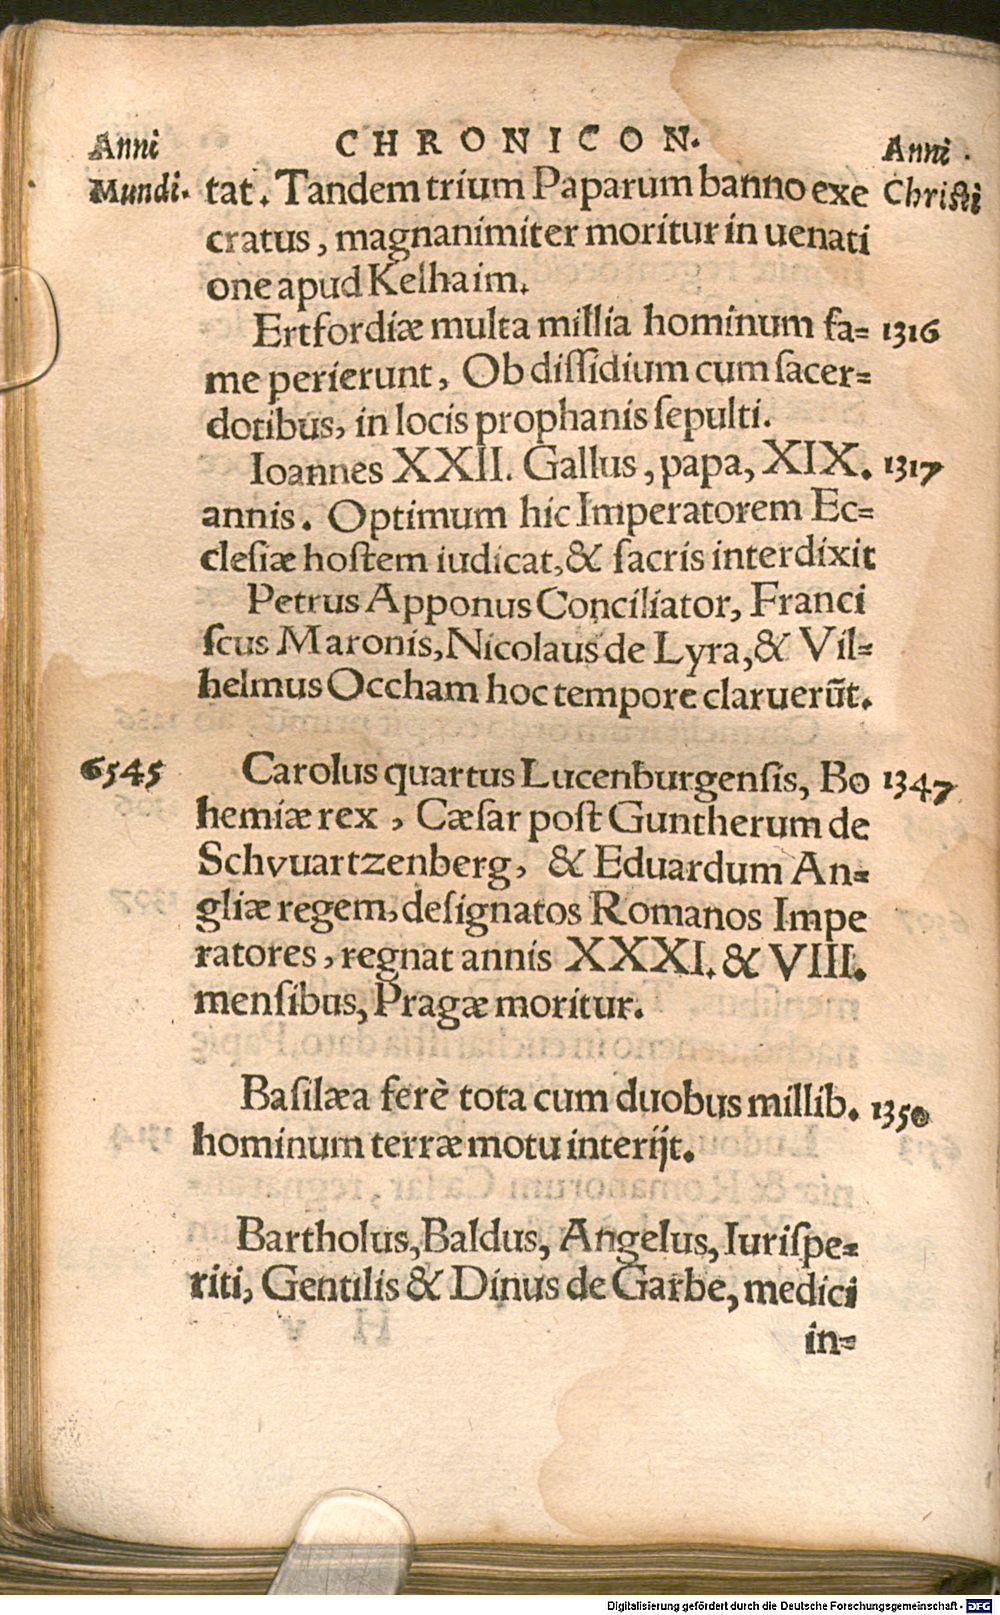 Anni CHRONICON. Anni
Mundi. tat. Tandem trium Paparum banno exe Christi
cratus, magnanimiter moritur in uenati
one apud Kelhaim.
Ertfordiæ multa millia hominum fa= 1316
me perierunt, Ob dissidium cum sacer=
dotibus, in locis prophanis sepulti.
Ioannes XXII. Gallus, papa, XIX. 1317
annis. Optimum hic Imperatorem Ec=
clesiæ hostem iudicat, & sacris interdixit
Petrus Apponus Conciliator, Franci
scus Maronis, Nicolaus de Lyra, & Vil=
helmus Occham hoc tempore claruerūt.
6545 Carolus quartus Lucenburgensis, Bo 1347
hemiæ rex, Cæsar post Guntherum de
Schvuartzenberg, & Eduardum An=
gliæ regem, designatos Romanos Impe
ratores, regnat annis XXXI. & VIII.
mensibus, Pragæ moritur.
Basilæa ferè tota cum duobus millib. 1350
hominum terræ motu interijt.
Bartholus, Baldus, Angelus, Iurispe=
riti, Gentilis & Dinus de Garbe, medici
in=
Digitalisierung gefördert durch die Deutsche Forschungsgemeinschaft - DFG